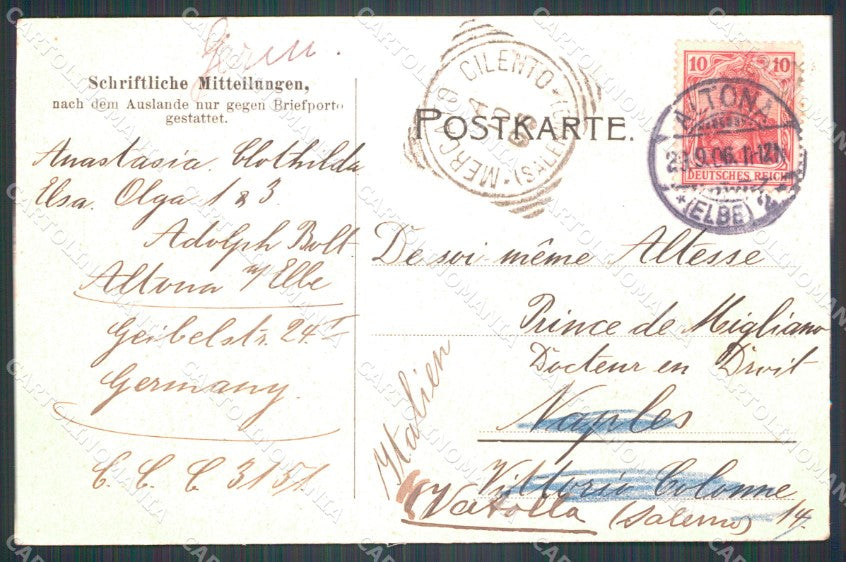 Schriftliche Mitteilungen,
nach dem Auslande nur gegen Briefporto
gestattet.
Anastasia. Clothilda
Elsa. Olga 1 & 3
Adolph Bolt
Altona a/Elbe
Geibelstr. 24 I
Germany.
C. C. C 3151
MERCATO CILENTO (SALERNO)
POSTKARTE.
10 10
DEUTSCHES REICH
ALTONA
9.06. 11-12N
* (ELBE) 2
De soi même Altesse
Prince de Migliano
Docteur en Droit
Naples
Vittoria Colonne
14.
Italien
Vatolla (Salerno)
CARTOLINOMANIA